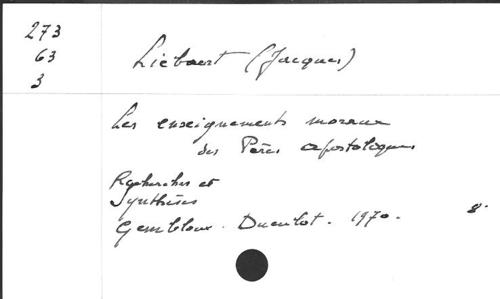 273
63
3
Liébaert (Jacques)
Les enseignements moraux
des Pères apostoliques
Recherches et
Synthèses
Gembloux. Duculot. 1970. 8°